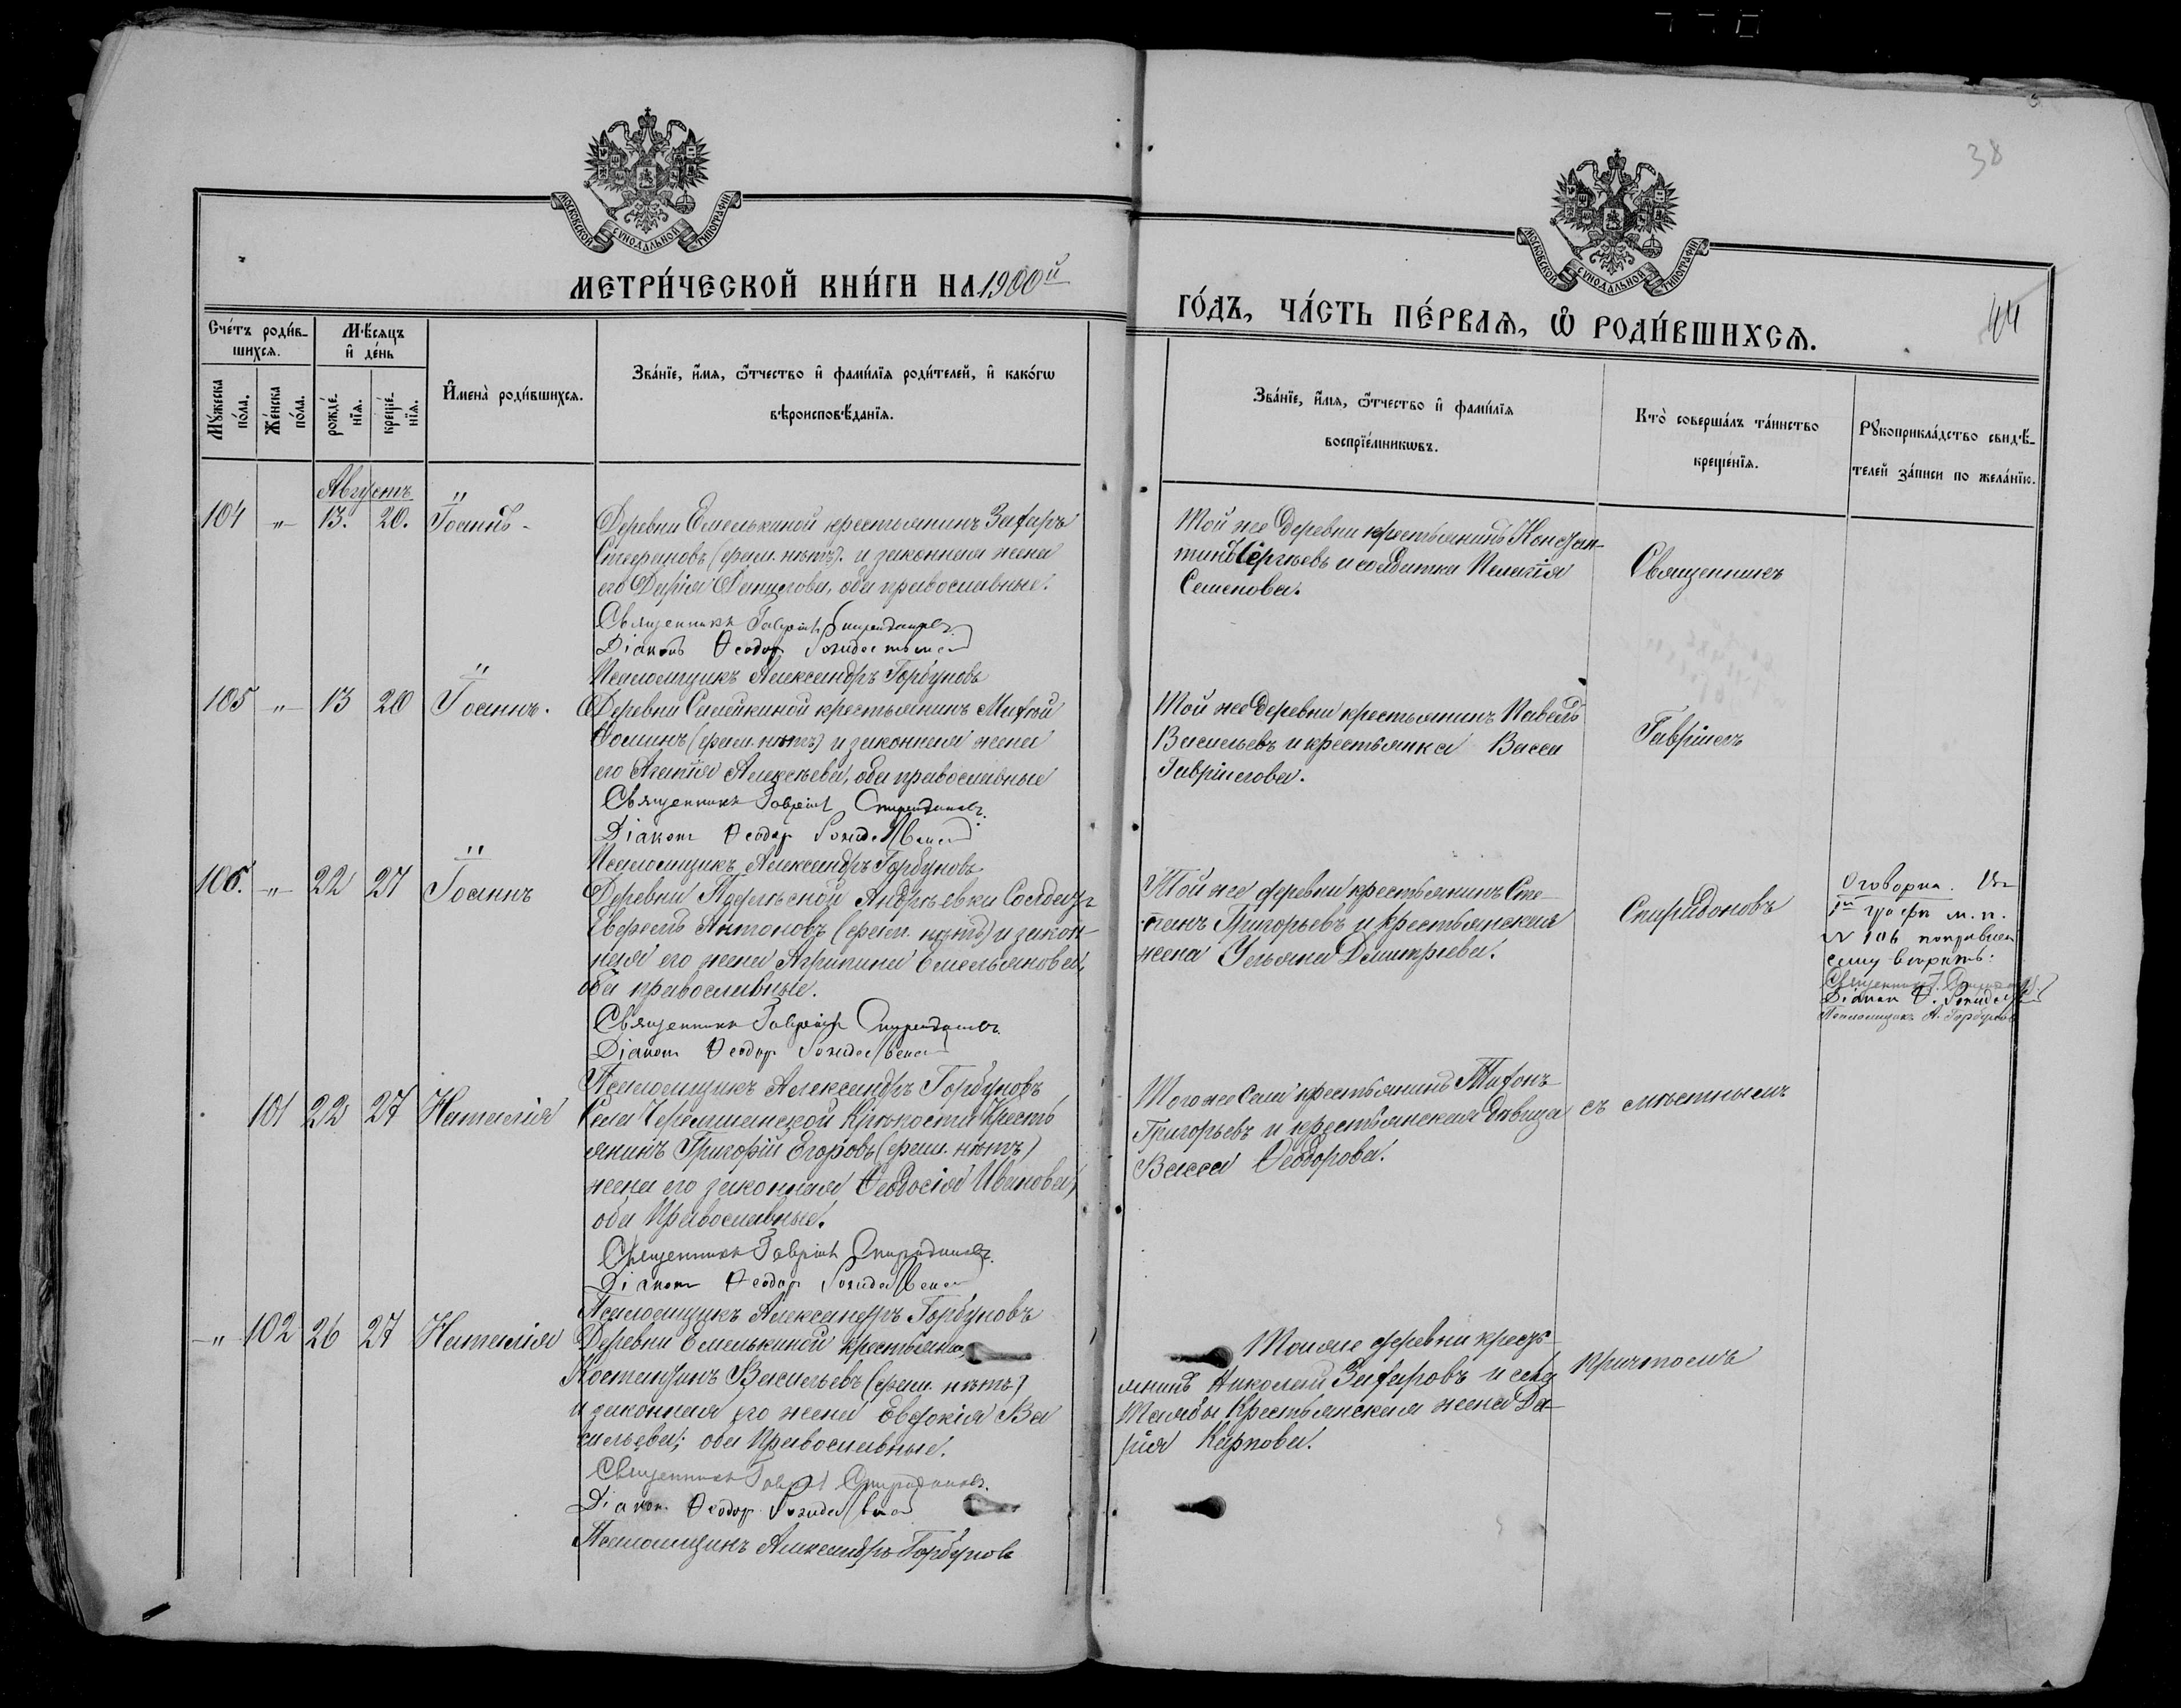 38
МОСКОВСКОЙ СУНОДАЛЬНОЙ ТИПОГРАФІИ
МОСКОВСКОЙ СУНОДАЛЬНОЙ ТИПОГРАФІИ
МЕТРИ́ЧЕСКОЙ КНИ́ГИ НА 1900й
ГО́ДЪ, ЧА́СТЬ ПЕ́РВАѦ, Ѡ РОДИ́ВШИХСѦ.
44
Сче́тъ роди́в-
шихсѧ.
Мꙋ́жеска
по́ла.
Же́нска
по́ла.
Мѣ́сѧцъ
и҆ де́нь
рожде́-
нїѧ.
креще́-
нїѧ.
И҆мена̀ роди́вшихсѧ.
Зва́нїе, и҆́мѧ, ѻ҆́тчество и҆ фами́лїѧ роди́телей, и҆ како́гѡ
вѣроисповѣ́данїѧ.
Зва́нїе, и҆́мѧ, ѻ҆́тчество и҆ фами́лїѧ
воспрїе́мникѡвъ.
Кто̀ соверша́лъ та́инство
креще́нїѧ.
Рꙋкоприкла́дство свидѣ́-
телей за́писи по жела́нїю.
Августъ
104 " 13. 20. Іоаннъ
Деревни Емелькиной крестьянинъ Захаръ
Стефановъ (фам. нѣтъ). и законная жена
его Дарія Данилова, оба православные.
Священникъ Гавріилъ Спиридоновъ
Діаконъ Ѳеодоръ Рождественскій
Псаломщикъ Александръ Горбуновъ
Той же деревни крестьянинъ Констан-
тинъ Сергѣевъ и солдатка Пелагія
Семенова.
Священникъ
105 " 13 20 Іоаннъ.
Деревни Семейкиной крестьянинъ
Ѳоминъ (фам. нѣтъ) и законная жена
его Агапія Алексѣева, оба православные
Священникъ Гавріилъ Спиридоновъ.
Діаконъ Ѳеодоръ Рождественскій
Псаломщикъ Александръ Горбуновъ
Той же деревни крестьянинъ Павелъ
Васильевъ и крестьянка Васса
Гавріилова.
Гавріилъ
106. " 22 27 Іоаннъ
Деревни Андреевки Солдатъ
Антоновъ (фам. нѣтъ) и закон-
ная его жена Агрипина Емельянова,
оба православные.
Священникъ Гавріилъ Спиридоновъ.
Діаконъ Ѳеодоръ Рождественскій
Псаломщикъ Александръ Горбуновъ
Той же деревни крестьянинъ Сте-
панъ Григорьевъ и крестьянская
жена Ульяна Димитріева.
Спиридоновъ
Оговорка. Въ
1й графѣ м. п.
№ 106
сему вѣрить:
Священникъ Г. Спиридоновъ
Діаконъ Ѳ. Рождественскій
Псаломщикъ А. Горбуновъ
101 22 27 Наталія
Села Черемшанской Крѣпости кресть
янинъ Григорій Егоровъ (фам. нѣтъ)
жена его законная Ѳеодосія Иванова,
оба Православные.
Священникъ Гавріилъ Спиридоновъ.
Діаконъ Ѳеодоръ Рождественскій
Псаломщикъ Александръ Горбуновъ
Того же Села крестьянинъ Тихонъ
Григорьевъ и крестьянская дѣвица
Васса Ѳеодорова.
съ мѣстнымъ
" 102 26 27 Наталія
Деревни Емелькиной крестьянинъ
Костантинъ Васильевъ (фам. нѣтъ)
и законная его жена Евдокія Ва
сильева; оба Православные.
Священникъ Гавріилъ Спиридоновъ.
Діаконъ Ѳеодоръ Рождественскій
Псаломщикъ Александръ Горбуновъ
Тоя же деревни крест-
янинъ Николай Захаровъ и села
крестьянская жена Да-
рія Карпова.
причтомъ